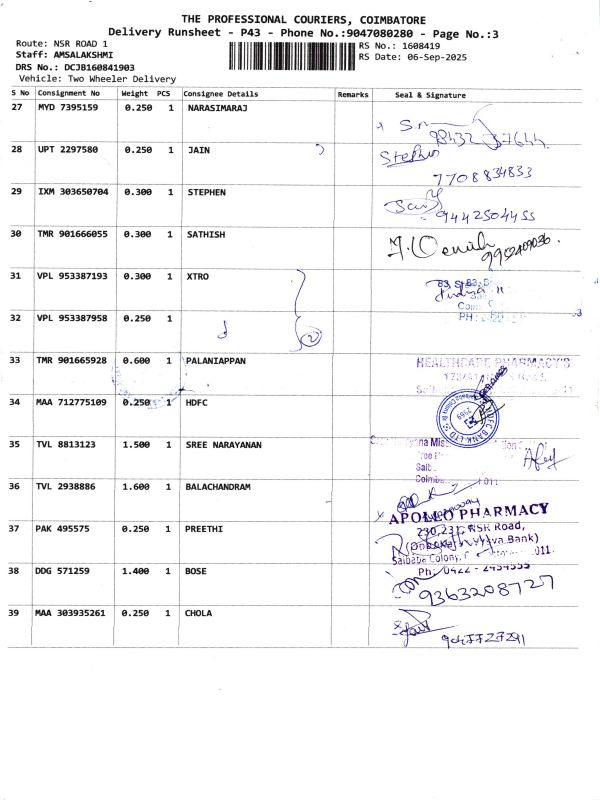 THE PROFESSIONAL COURIERS, COIMBATORE
Delivery Runsheet - P43 - Phone No.:9047080280 - Page No.:3
Route: NSR ROAD 1
RS No.: 1608419
Staff: AMSALAKSHMI
RS Date: 06-Sep-2025
DRS No.: DCJB160841903
Vehicle: Two Wheeler Delivery
S No Consignment No Weight PCS Consignee Details Remarks Seal & Signature
27 MYD 7395159 0.250 1 NARASIMARAJ
28 UPT 2297580 0.250 1 JAIN
Stephen
7708834833
29 IXM 303650704 0.300 1 STEPHEN
9442504455
30 TMR 901666055 0.300 1 SATHISH
31 VPL 953387193 0.300 1 XTRO
32 VPL 953387958 0.250 1
2
PH:
33 TMR 901665928 0.600 1 PALANIAPPAN
HEALTHCARE PHARMACY'S
34 MAA 712775109 0.250 1 HDFC
HDFC BANK LTD
35 TVL 8813123 1.500 1 SREE NARAYANAN
36 TVL 2938886 1.600 1 BALACHANDRAM
APOLLO PHARMACY
37 PAK 495575 0.250 1 PREETHI
230,231, NSR Road,
Saibaba Colony,
38 DDG 571259 1.400 1 BOSE
Ph: 0422 - 2434333
9363208727
39 MAA 303935261 0.250 1 CHOLA